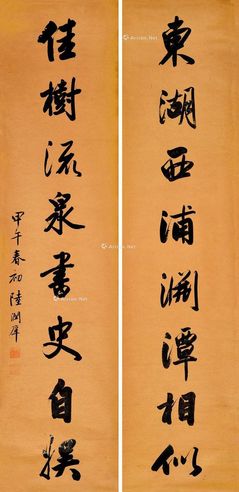 東湖西浦渊潭相似
佳樹流泉書史自㨾
甲午春初陸潤庠